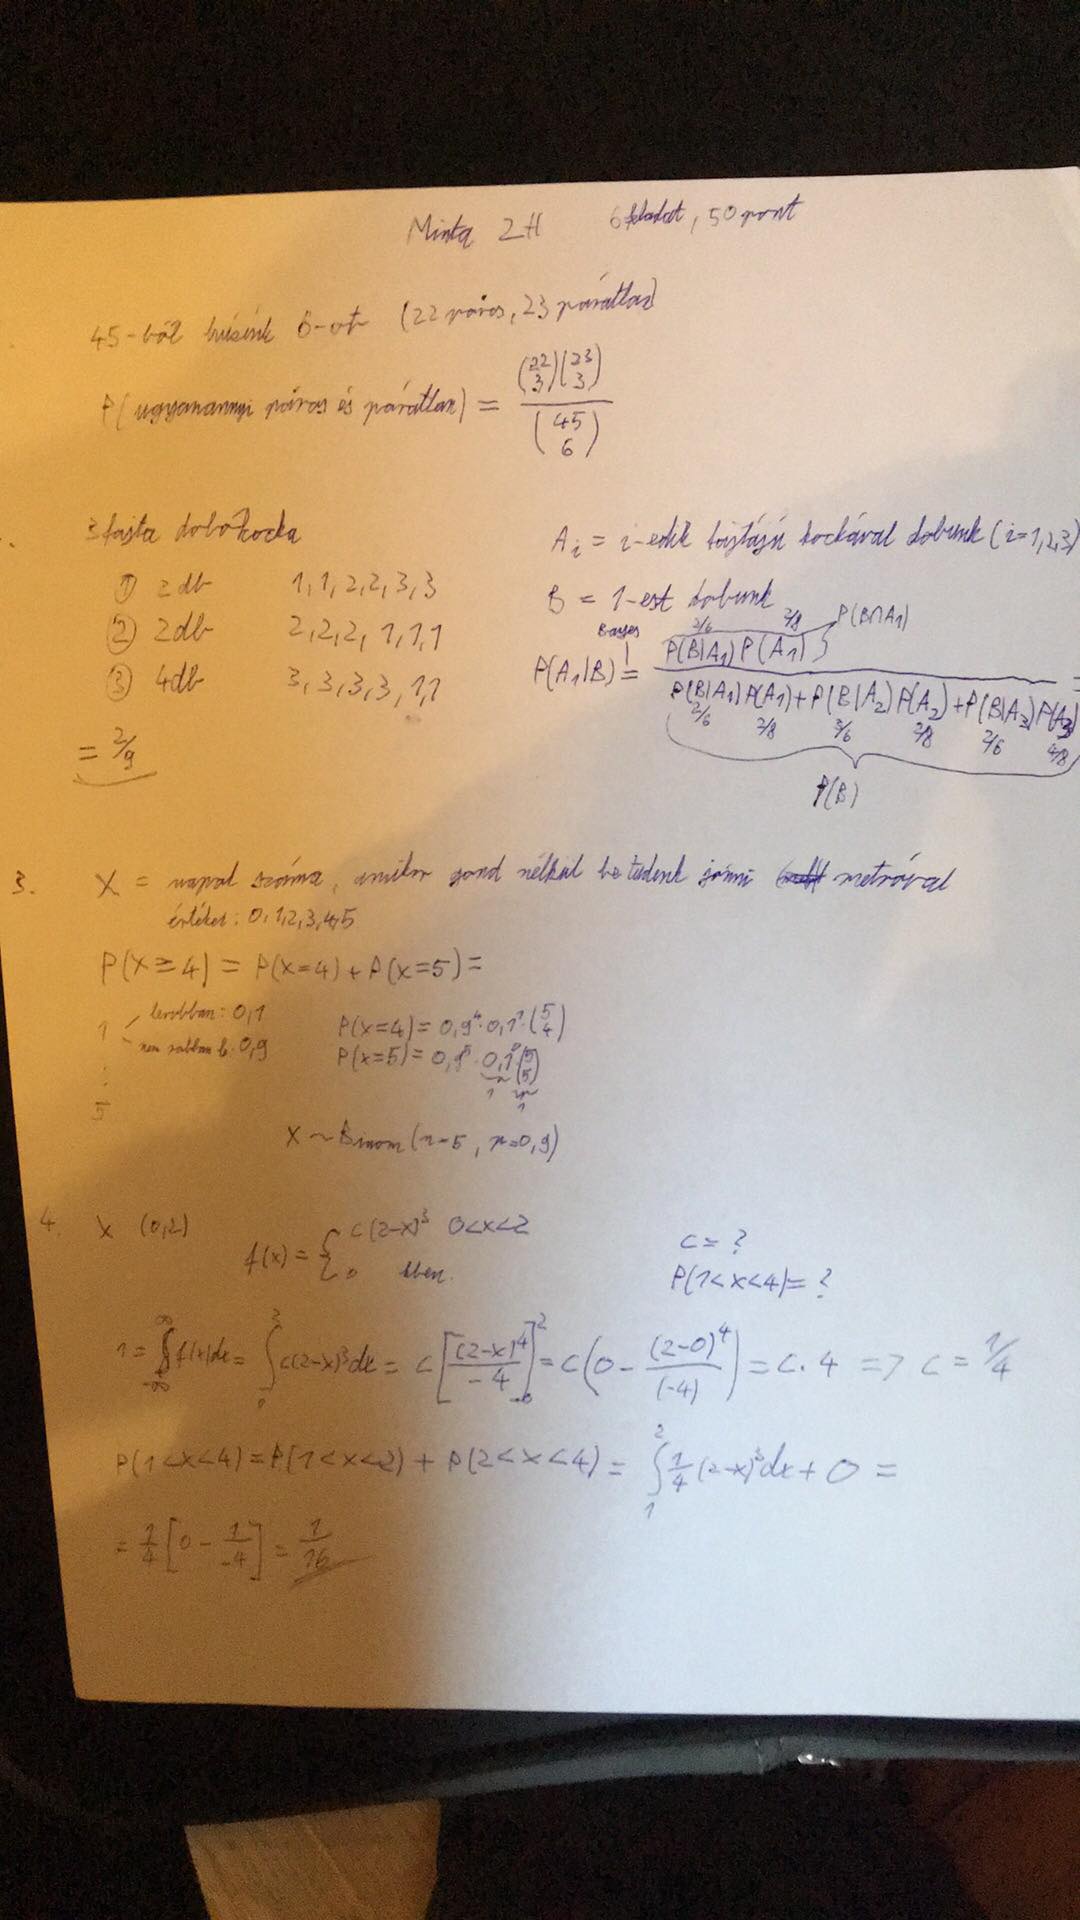 Minta ZH 6 feladat, 50 pont
45-ből húzunk 6-ot (22 páros, 23 páratlan)
P(ugyanannyi páros és páratlan) = \frac{\binom{22}{3}\binom{23}{3}}{\binom{45}{6}}
3 fajta dobókocka
① 2db 1,1,2,2,3,3
② 2db 2,2,2,1,1,1
③ 4db 3,3,3,3,1,1
= 2/9
A_i = i-edik fajtájú kockával dobunk (i=1,2,3)
B = 1-est dobunk
Bayes 2/6 2/8 P(B∩A_1)
P(A_1|B) = \frac{P(B|A_1)P(A_1)}{P(B|A_1)P(A_1)+P(B|A_2)P(A_2)+P(B|A_3)P(A_3)} =
2/6 2/8 3/6 2/8 2/6 4/8
P(B)
3. X = napok száma, amikor gond nélkül be tudunk jönni metróval
értékei: 0,1,2,3,4,5
P(X≥4) = P(X=4) + P(X=5) =
1 lerobban: 0,1
nem robban le: 0,9
⋮
5
P(X=4) = 0,9^4 · 0,1^1 · \binom{5}{4}
P(X=5) = 0,9^5 · 0,1^0 \binom{5}{5}
1 1
X ~ Binom(n=5, p=0,9)
4. X (0,2)
f(x) = { c(2-x)^3 0<x<2
0 kben.
c = ?
P(1<X<4) = ?
1 = ∫_{-∞}^{∞} f(x)dx = ∫_0^2 c(2-x)^3dx = c[\frac{(2-x)^4}{-4}]_0^2 = c(0 - \frac{(2-0)^4}{(-4)}) = c·4 => c = 1/4
P(1<X<4) = P(1<X<2) + P(2<X<4) = ∫_1^2 \frac{1}{4}(2-x)^3dx + 0 =
= \frac{1}{4}[0 - \frac{1}{-4}] = \frac{1}{16}